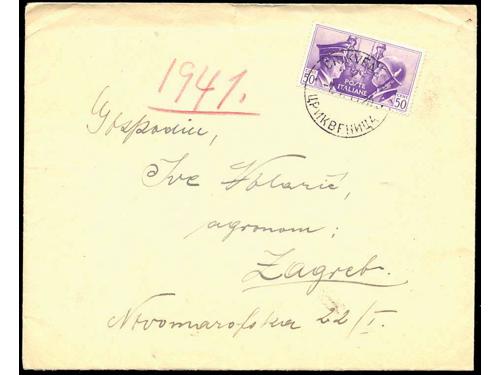 1941.
50
POSTE
ITALIANE
CENT
50
ЦРИКВЕНИЦА
Gospodin,
Ive Volarić,
agronom;
Zagreb.
Novomarofska 22/I.